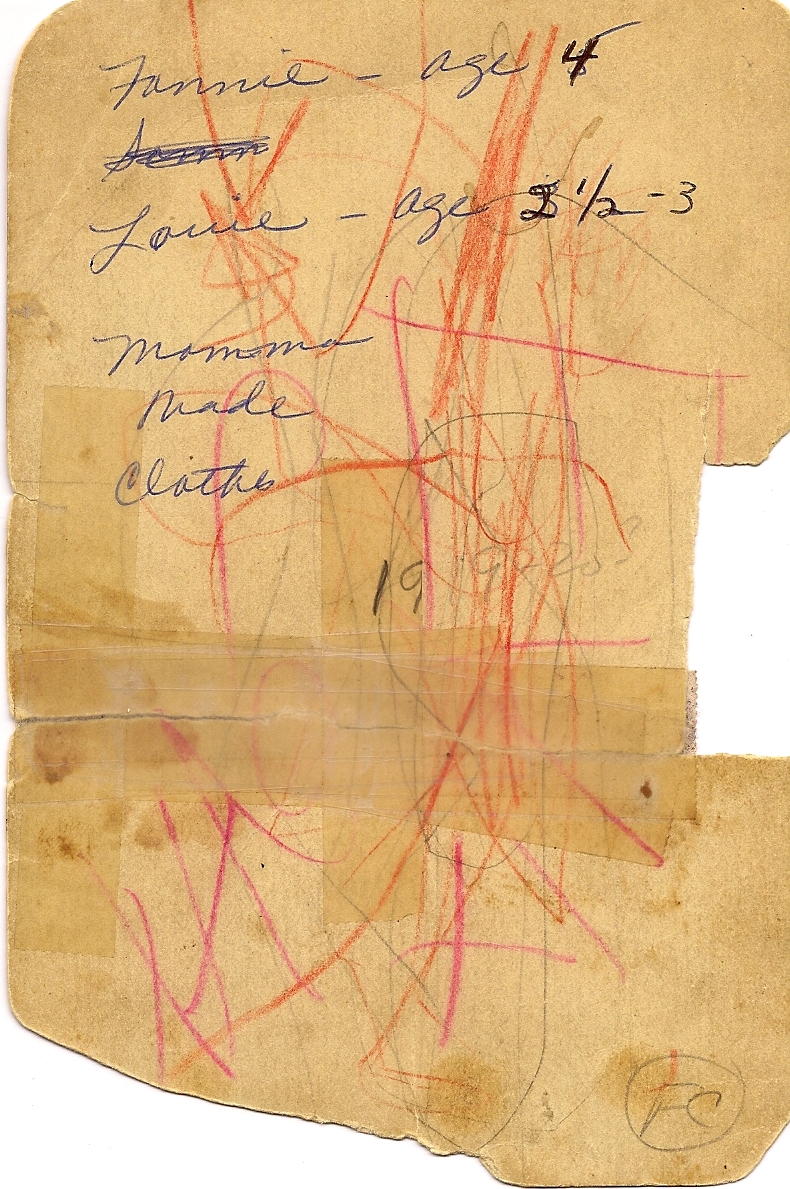 Fannie - age 4
Louie - age 3 1/2 - 3
Momma
Made
Clothes
19 1922 5?
FC